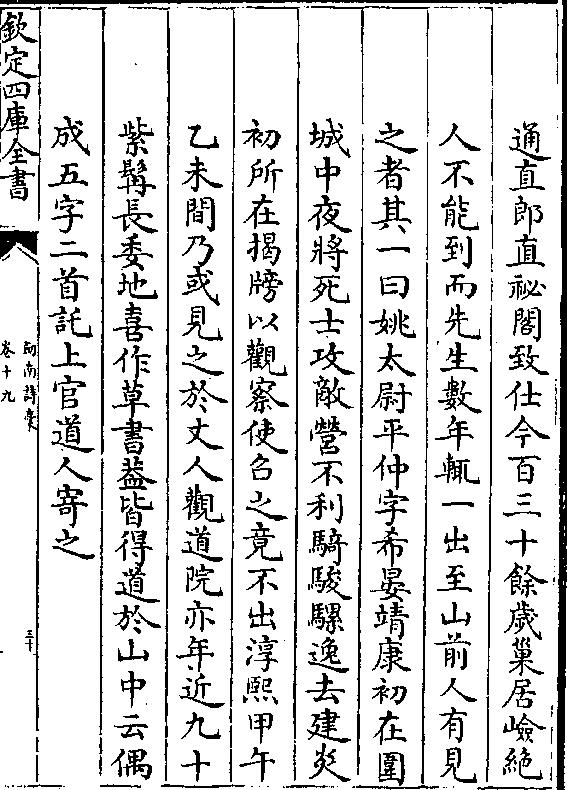 通直郎直祕閣致仕今百三十餘歲巢居嶮絶
人不能到而先生數年輒一出至山前人有見
之者其一曰姚太尉平仲字希晏靖康初在圍
城中夜將死士攻敵營不利騎駿騾逸去建炎
初所在揭牓以觀察使召之竟不出淳熙甲午
乙未間乃或見之於丈人觀道院亦年近九十
紫髯長委地喜作草書葢皆得道於山中云偶
成五字二首託上官道人寄之
欽定四庫全書
劍南詩稾
卷十九
三十